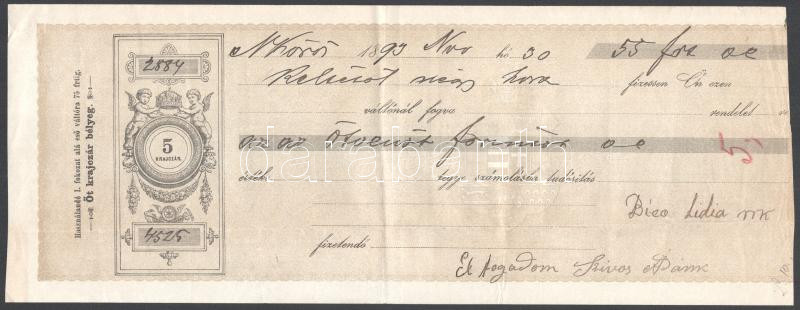 Használandó I. fokozat alá eső váltóra 75 frtig.
Öt krajczár bélyeg.
2884
5
KRAJCZÁR.
4525
N Kőrös 1893 Nov hó 30 55 frt o é
Keltétől négy hóra fizessen Ön ezen
váltónál fogva rendelet
az az Ötvenöt forintot o é
5,
érték tegye számolásba tudósítás
Lidia mk
fizetendő
El fogadom Szivos
darabanth